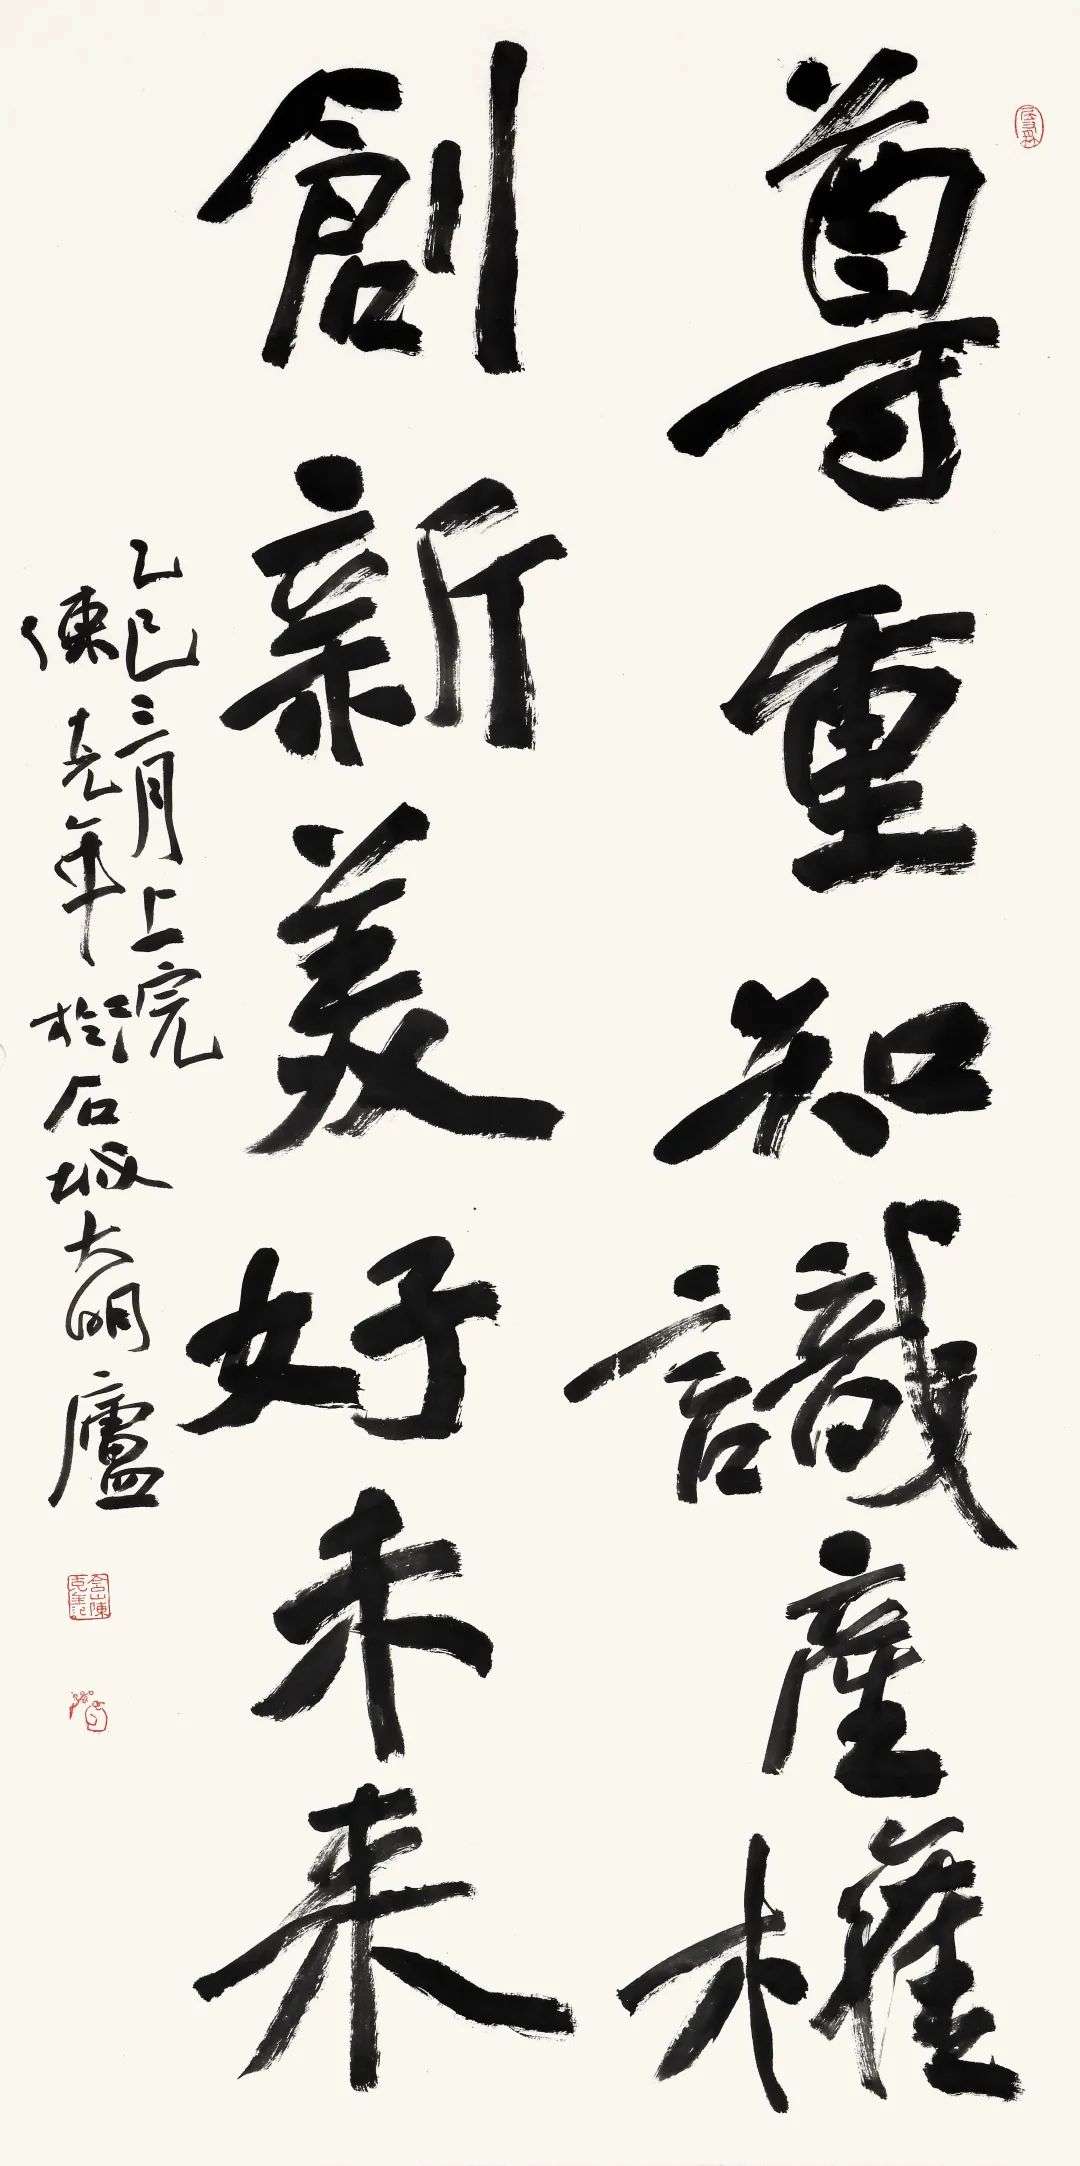 尊重知識產權
創新美好未来
乙巳三月上浣
陳克年於石城大明廬